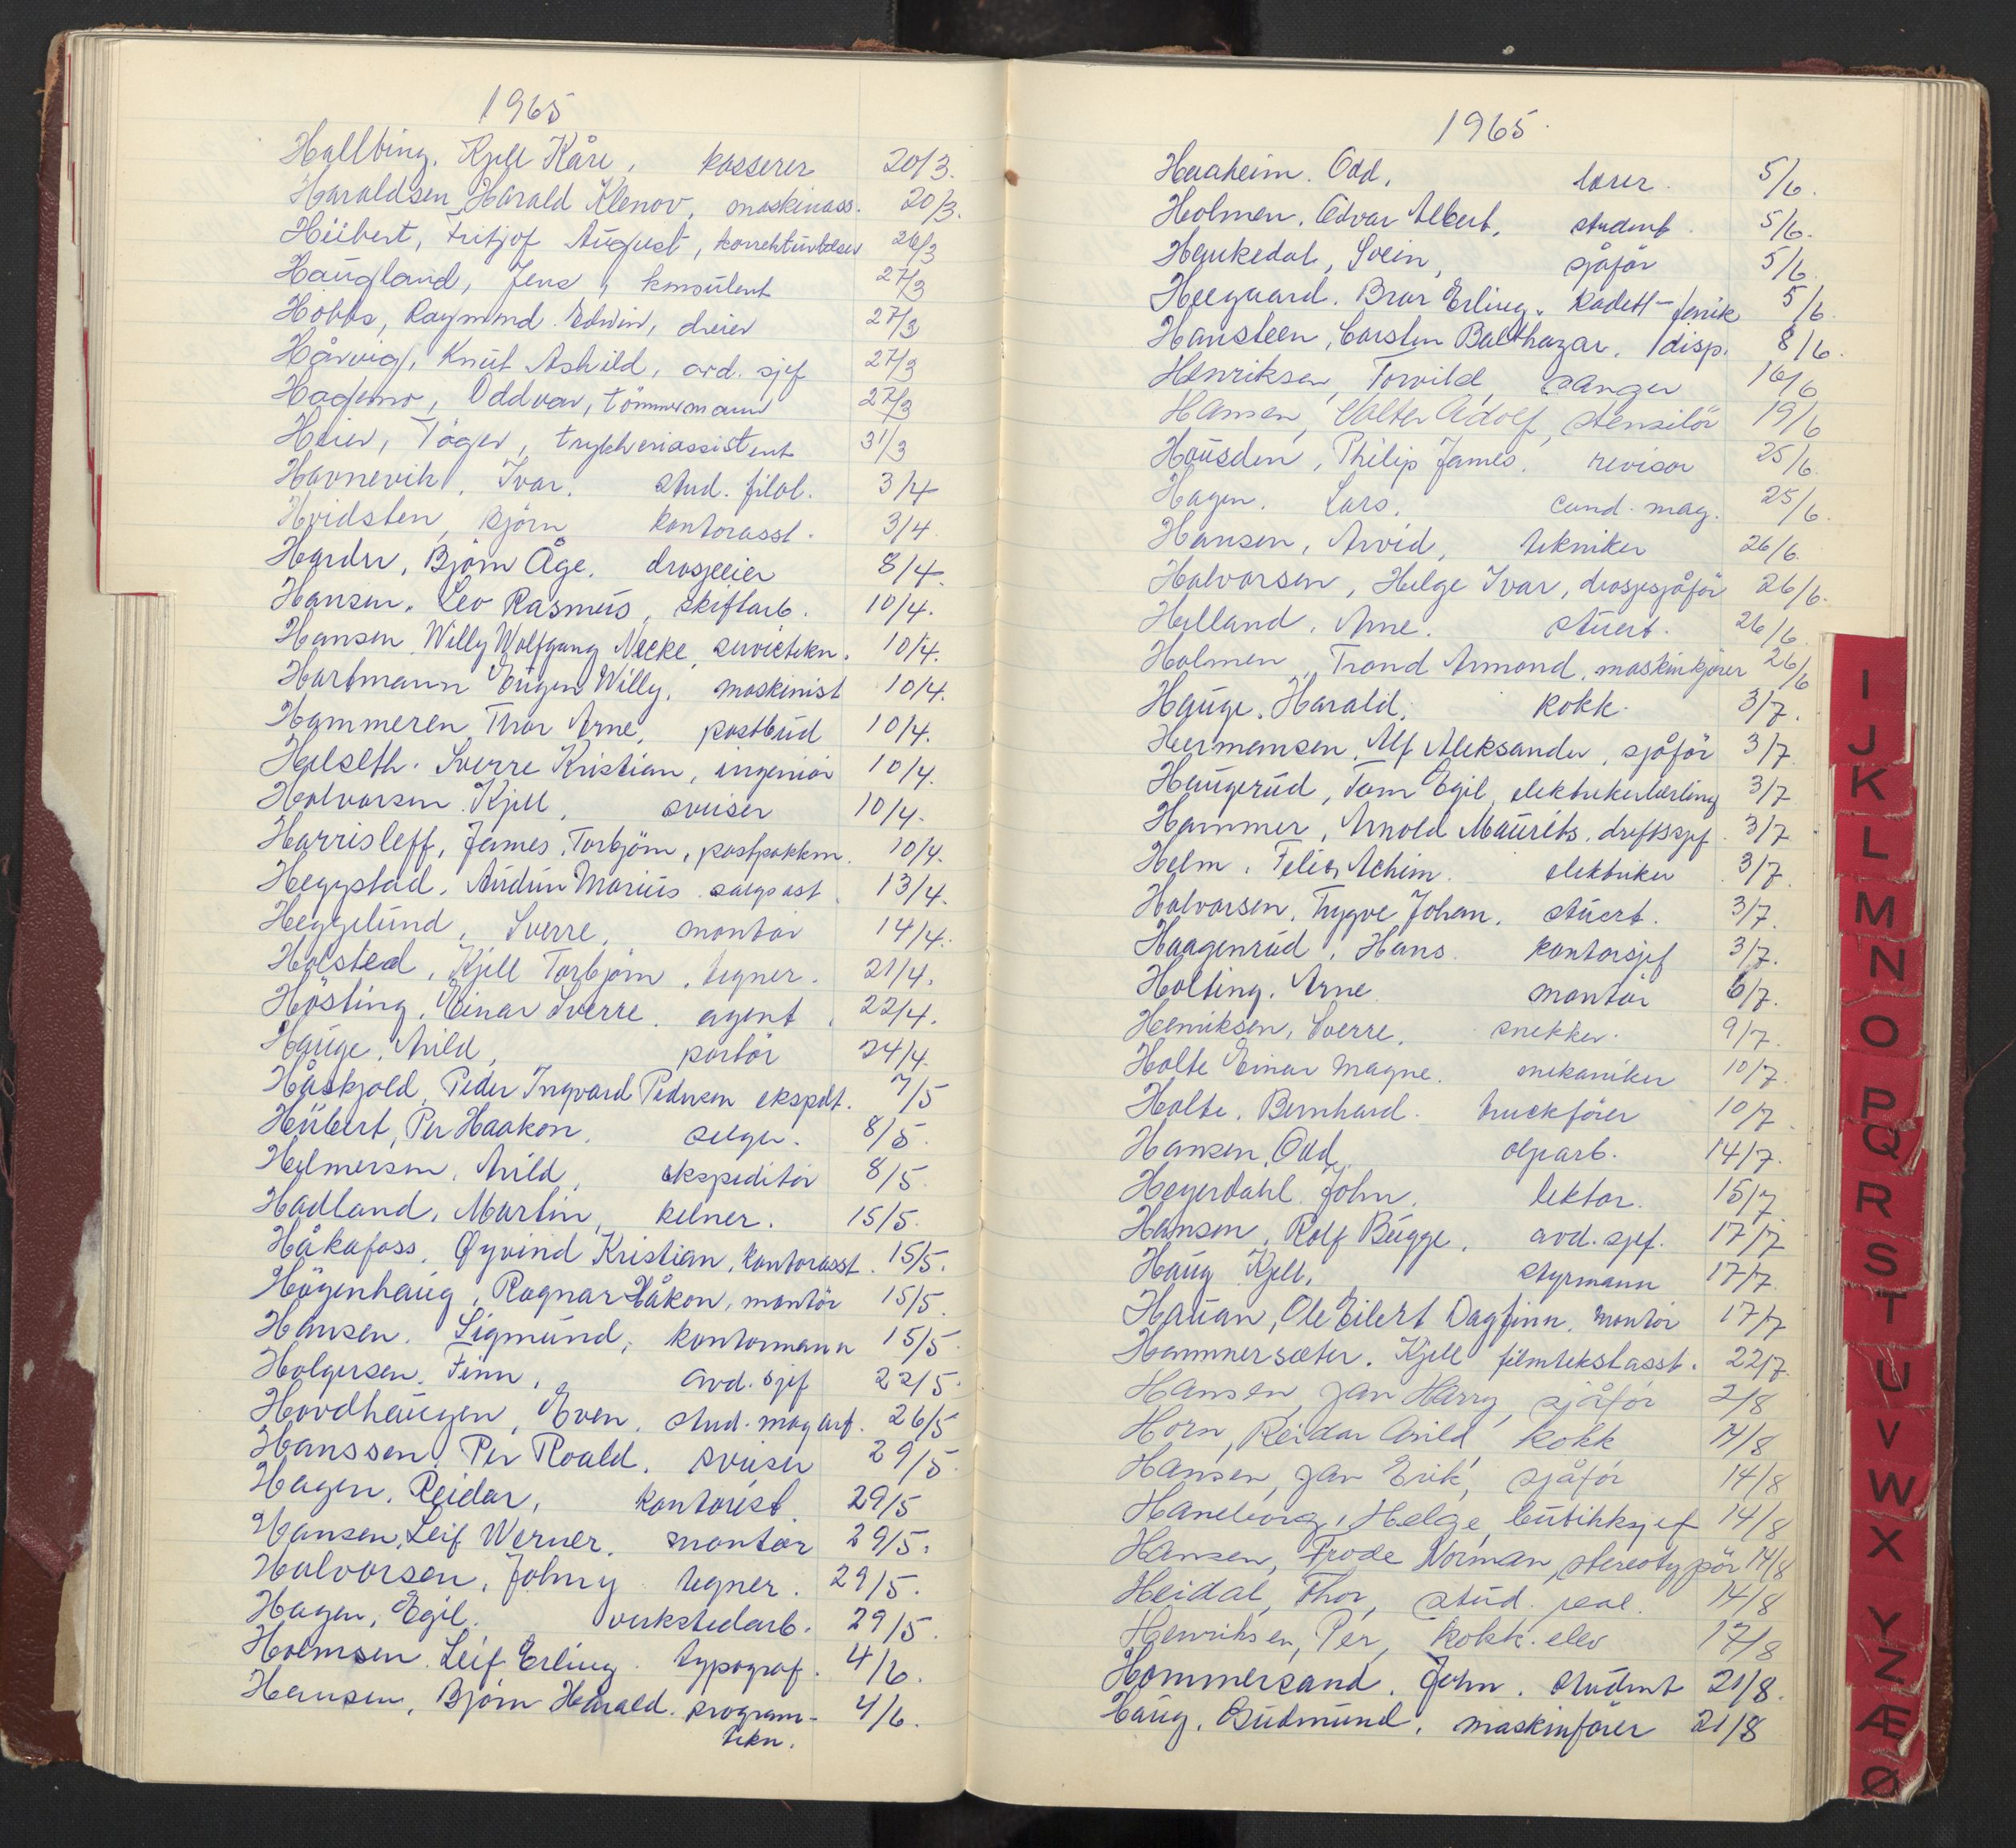 1965
Hallbing, Kjell Kåre, kasserer 20/3.
Haraldsen, Harald Klenov, maskinass. 20/3.
Hübert, Fritjof August, korrekturleser 26/3
Haugland, Jens, konsulent 27/3
Hobbs, Raymond Edwin, dreier 27/3
Hårvig, Knut Ashild, avd. sjef 27/3
Hagemo, Oddvar, tömmermann 27/3
Heier, Töger, trykkeriassistent 31/3
Havnevik, Ivar, stud. filol. 3/4
Hvidsten, Björn kontorasst. 3/4
Harder, Björn Åge, drosjeeier 8/4.
Hansen, Leo Rasmus, skiftarb. 10/4.
Hansen, Willy Wolfgang Necke, servictekn. 10/4.
Hartmann Eugen Willy, maskinist 10/4.
Hammeren, Thor Arne, postbud 10/4.
Helseth, Sverre Kristian, ingeniör 10/4.
Halvorsen, Kjell, sveiser 10/4.
Harrisleff, James Torbjörn, postpakkm. 10/4.
Heggstad, Audun Marius salgsast. 13/4.
Heggelund, Sverre, montör 14/4.
Holsted, Kjell Torbjörn, tegner. 21/4.
Hösting, Einar Sverre, agent. 22/4.
Hauge, Arild, portör 24/4.
Håskjold, Peder Ingvard Pedersen ekspdt. 7/5
Hübert, Per Haakon, selger. 8/5.
Helmersen, Arild, ekspeditör 8/5.
Hadland, Martin, kelner. 15/5.
Håkafoss, Øyvind Kristian, kontorasst. 15/5.
Högenhaug, Ragnar Håkon, montör 15/5.
Hansen, Sigmund, kontormann 15/5.
Holgersen, Finn, avd. sjef 22/5.
Hovdhaugen, Even, stud. mag art. 26/5
Hanssen, Per Roald, sveiser 29/5.
Hagen, Reidar, kontorist 29/5
Hansen, Leif Werner, montör 29/5.
Halvorsen, Johny tegner. 29/5.
Hagen, Egil, verkstedarb. 29/5.
Holmsen, Leif Erling. typograf. 4/6.
Hansen, Björn Harald. program- 4/6.
tekn.
1965.
Haaheim, Odd, lærer. 5/6.
Holmen, Odvar Albert, student. 5/6.
Haukedal, Svein, sjåför 5/6
Heegaard, Bror Erling, kadett-fenrik 5/6.
Hansteen, Carsten Balthazar, disp. 8/6.
Henriksen, Torvild, sanger 16/6
Hansen, Walter Adolf, stensilör 19/6
Housden, Philip James, revisor 25/6.
Hagen, Lars, cand. mag. 25/6.
Hansen, Arvid, tekniker 26/6.
Halvorsen, Helge Ivar, drosjesjåför 26/6.
Helland, Arne. stuert. 26/6.
Holmen, Trond Armond, maskinkjörer 26/6
Hauge, Harald, kokk. 3/7.
Hermansen, Alf Aleksander, sjåför 3/7.
Haugerud, Tom Egil, elektrikerlærling 3/7
Hammer, Arnold Maurits, driftssjef. 3/7
Helm, Felix Achim. elektriker 3/7.
Halvorsen, Trygve Johan, stuert. 3/7.
Haagenrud, Hans. kontorsjef 3/7.
Holting, Arne montör 6/7.
Henriksen, Sverre, snekker. 9/7.
Holte Einar Magne. mekaniker 10/7.
Holte, Bernhard. truckförer 10/7.
Hansen, Odd olparb. 14/7.
Heyerdahl John, lektor. 15/7.
Hansen, Rolf Bugge, avd. sjef. 17/7
Haug Kjell, styrmann 17/7.
Hauan, Ole Eilert Dagfinn, montör 17/7
Hammersæter, Kjell filmtekstasst. 22/7.
Hansen, Jan Harry, sjåför 2/8
Horn, Reidar Arild, kokk 14/8
Hansen, Jan Erik, sjåför 14/8
Haneborg, Helge, butikksjef 14/8
Hansen, Frode Norman, stereotypör 14/8
Heidal, Thor, stud. real. 14/8
Henriksen, Per, kokk. elev 17/8
Hommersand, John. student 21/8.
Haug, Gudmund, maskinförer 21/8
I
J
K
L
M
N
O
P
Q
R
S
T
U
V
W
X
Y
Z
Æ
Ø